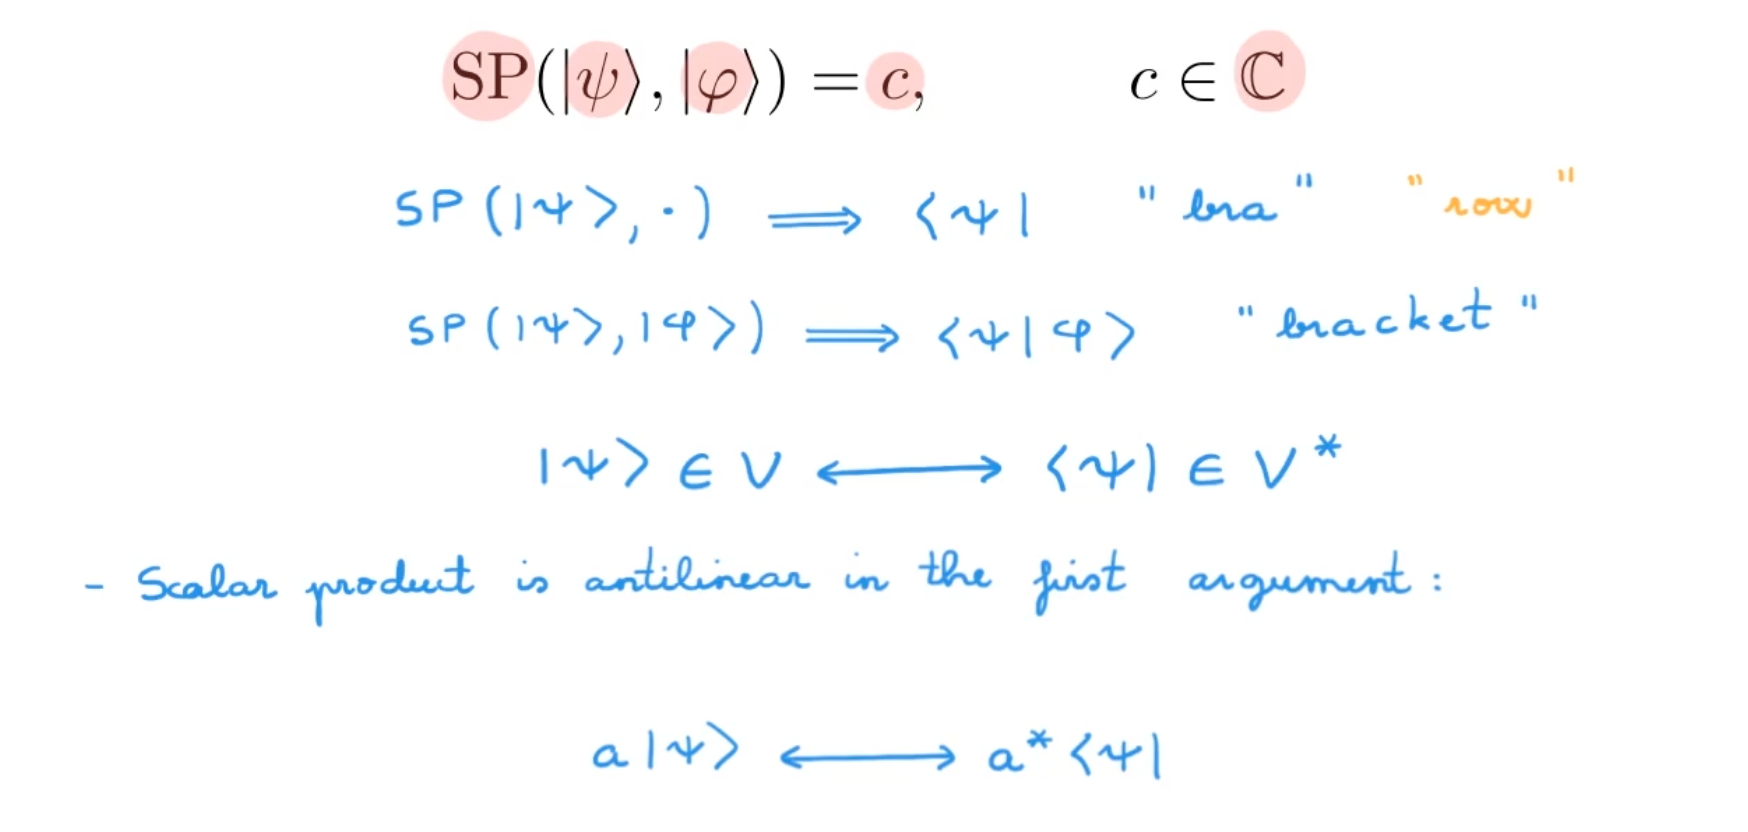 SP(|ψ⟩, |φ⟩) = c, c ∈ ℂ
SP(|ψ⟩, ·) ⟹ ⟨ψ| "bra" "row"
SP(|ψ⟩, |φ⟩) ⟹ ⟨ψ|φ⟩ "bracket"
|ψ⟩ ∈ V ⟷ ⟨ψ| ∈ V*
- Scalar product is antilinear in the first argument:
a|ψ⟩ ⟷ a*⟨ψ|